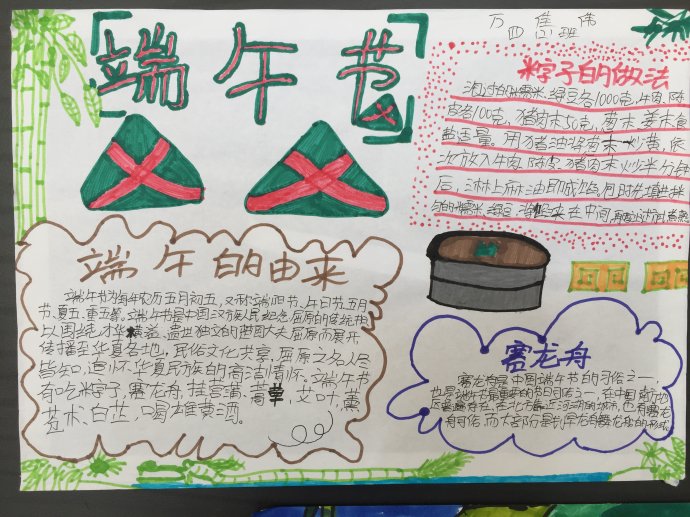 万佳伟
四(2)班
端午节
粽子的做法
泡过的糯米,绿豆各1000克,牛肉,陈
皮各100克,猪肉末50克,葱末,姜末食
盐适量。用猪油将葱末炒黄,依
次放入牛肉,陈皮,猪肉末炒半分钟
后,淋上麻油即成馅,包时先填进拌
匀的糯米,绿豆,在中间,
端午的由来
端午节为每年农历五月初五,又称端阳节、午日节、五月
节、夏五、重五等,端午节是中国汉族人民纪念屈原的传统节
以围绕才华横溢、遗世独立的楚国大夫屈原而展开
传播至华夏各地,民俗文化共享,屈原之名人尽
皆知,追怀华夏民族的高洁情怀。端午节
有吃粽子,赛龙舟,挂菖蒲、蒿草、艾叶,薰
苍术、白芷,喝雄黄酒。
赛龙舟
赛龙舟是中国端午节的习俗之一
也是端午节最重要的节日习俗之一,在中国南方地
区普遍存在,在北方靠近河湖的城市,也有赛龙
舟习俗,而大部分是划旱龙舞龙船的形式